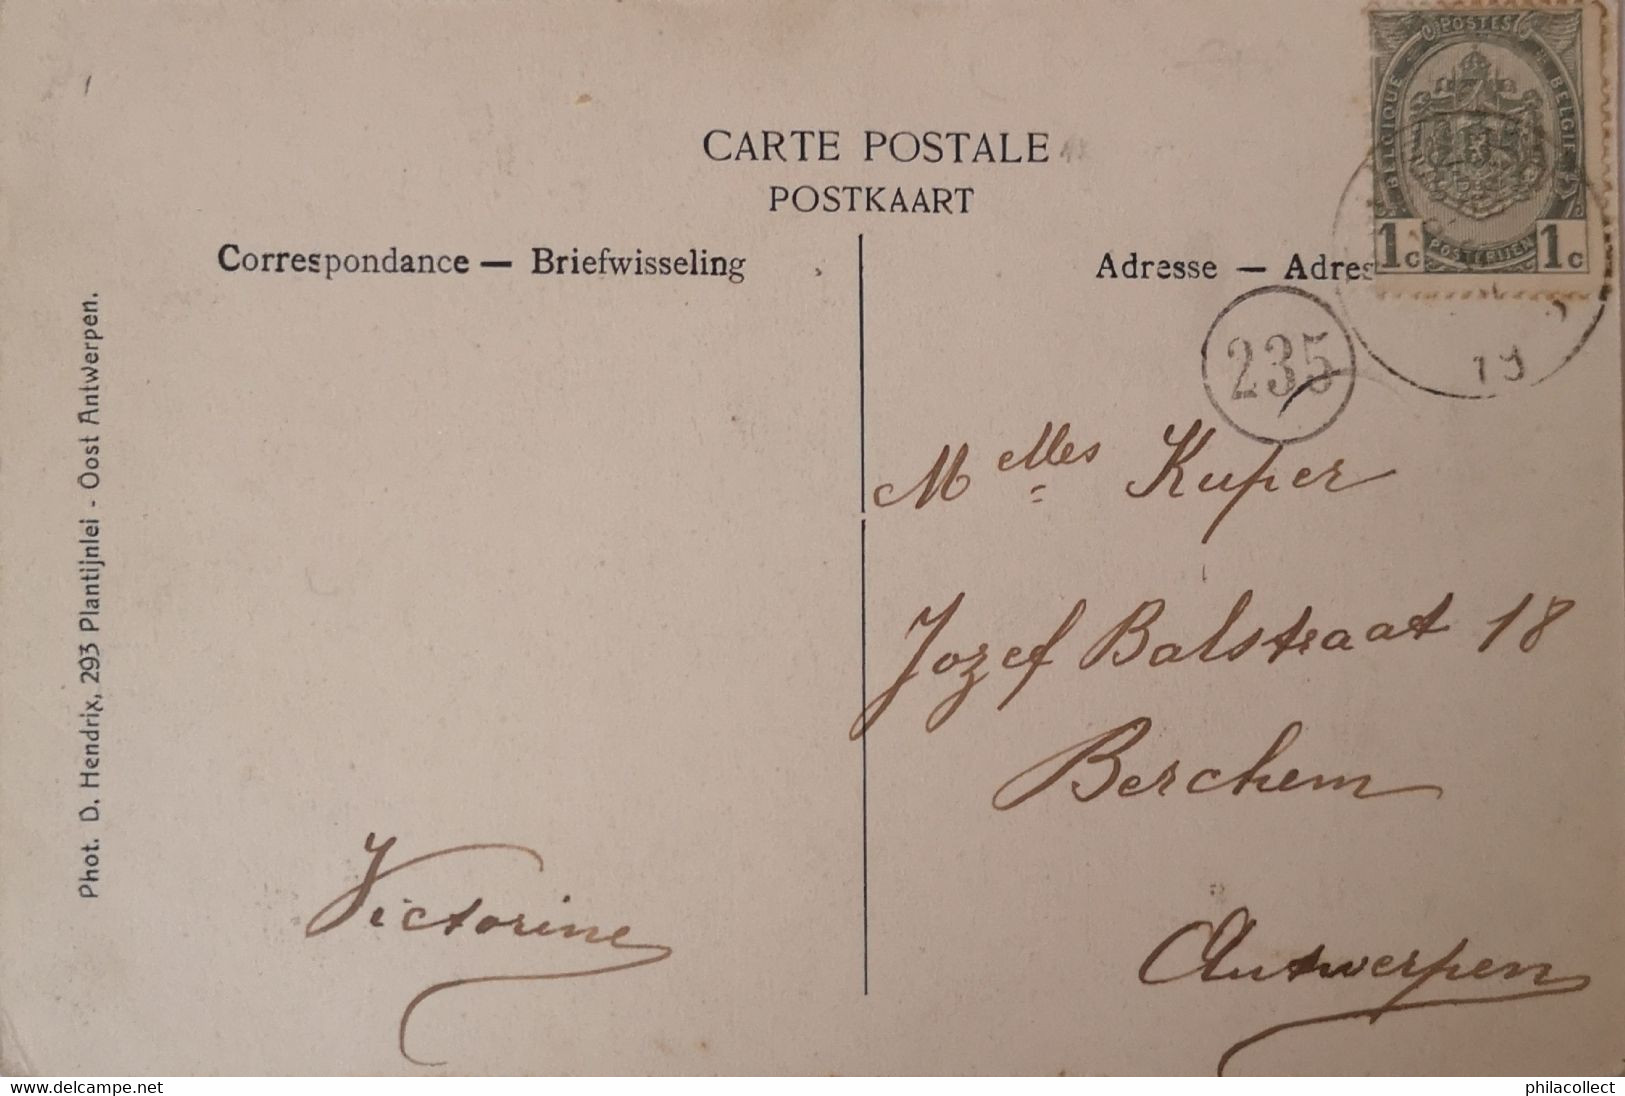 CARTE POSTALE
POSTKAART
Correspondance — Briefwisseling
Adresse — Adres
POSTES
BELGIQUE
BELGIE
1c POSTERIJEN 1c
235
19
Phot. D. Hendrix, 293 Plantijnlei - Oost Antwerpen.
Melles Kuper
Jozef Balstraat 18
Berchem
Antwerpen
Victorine
www.delcampe.net
philacollect